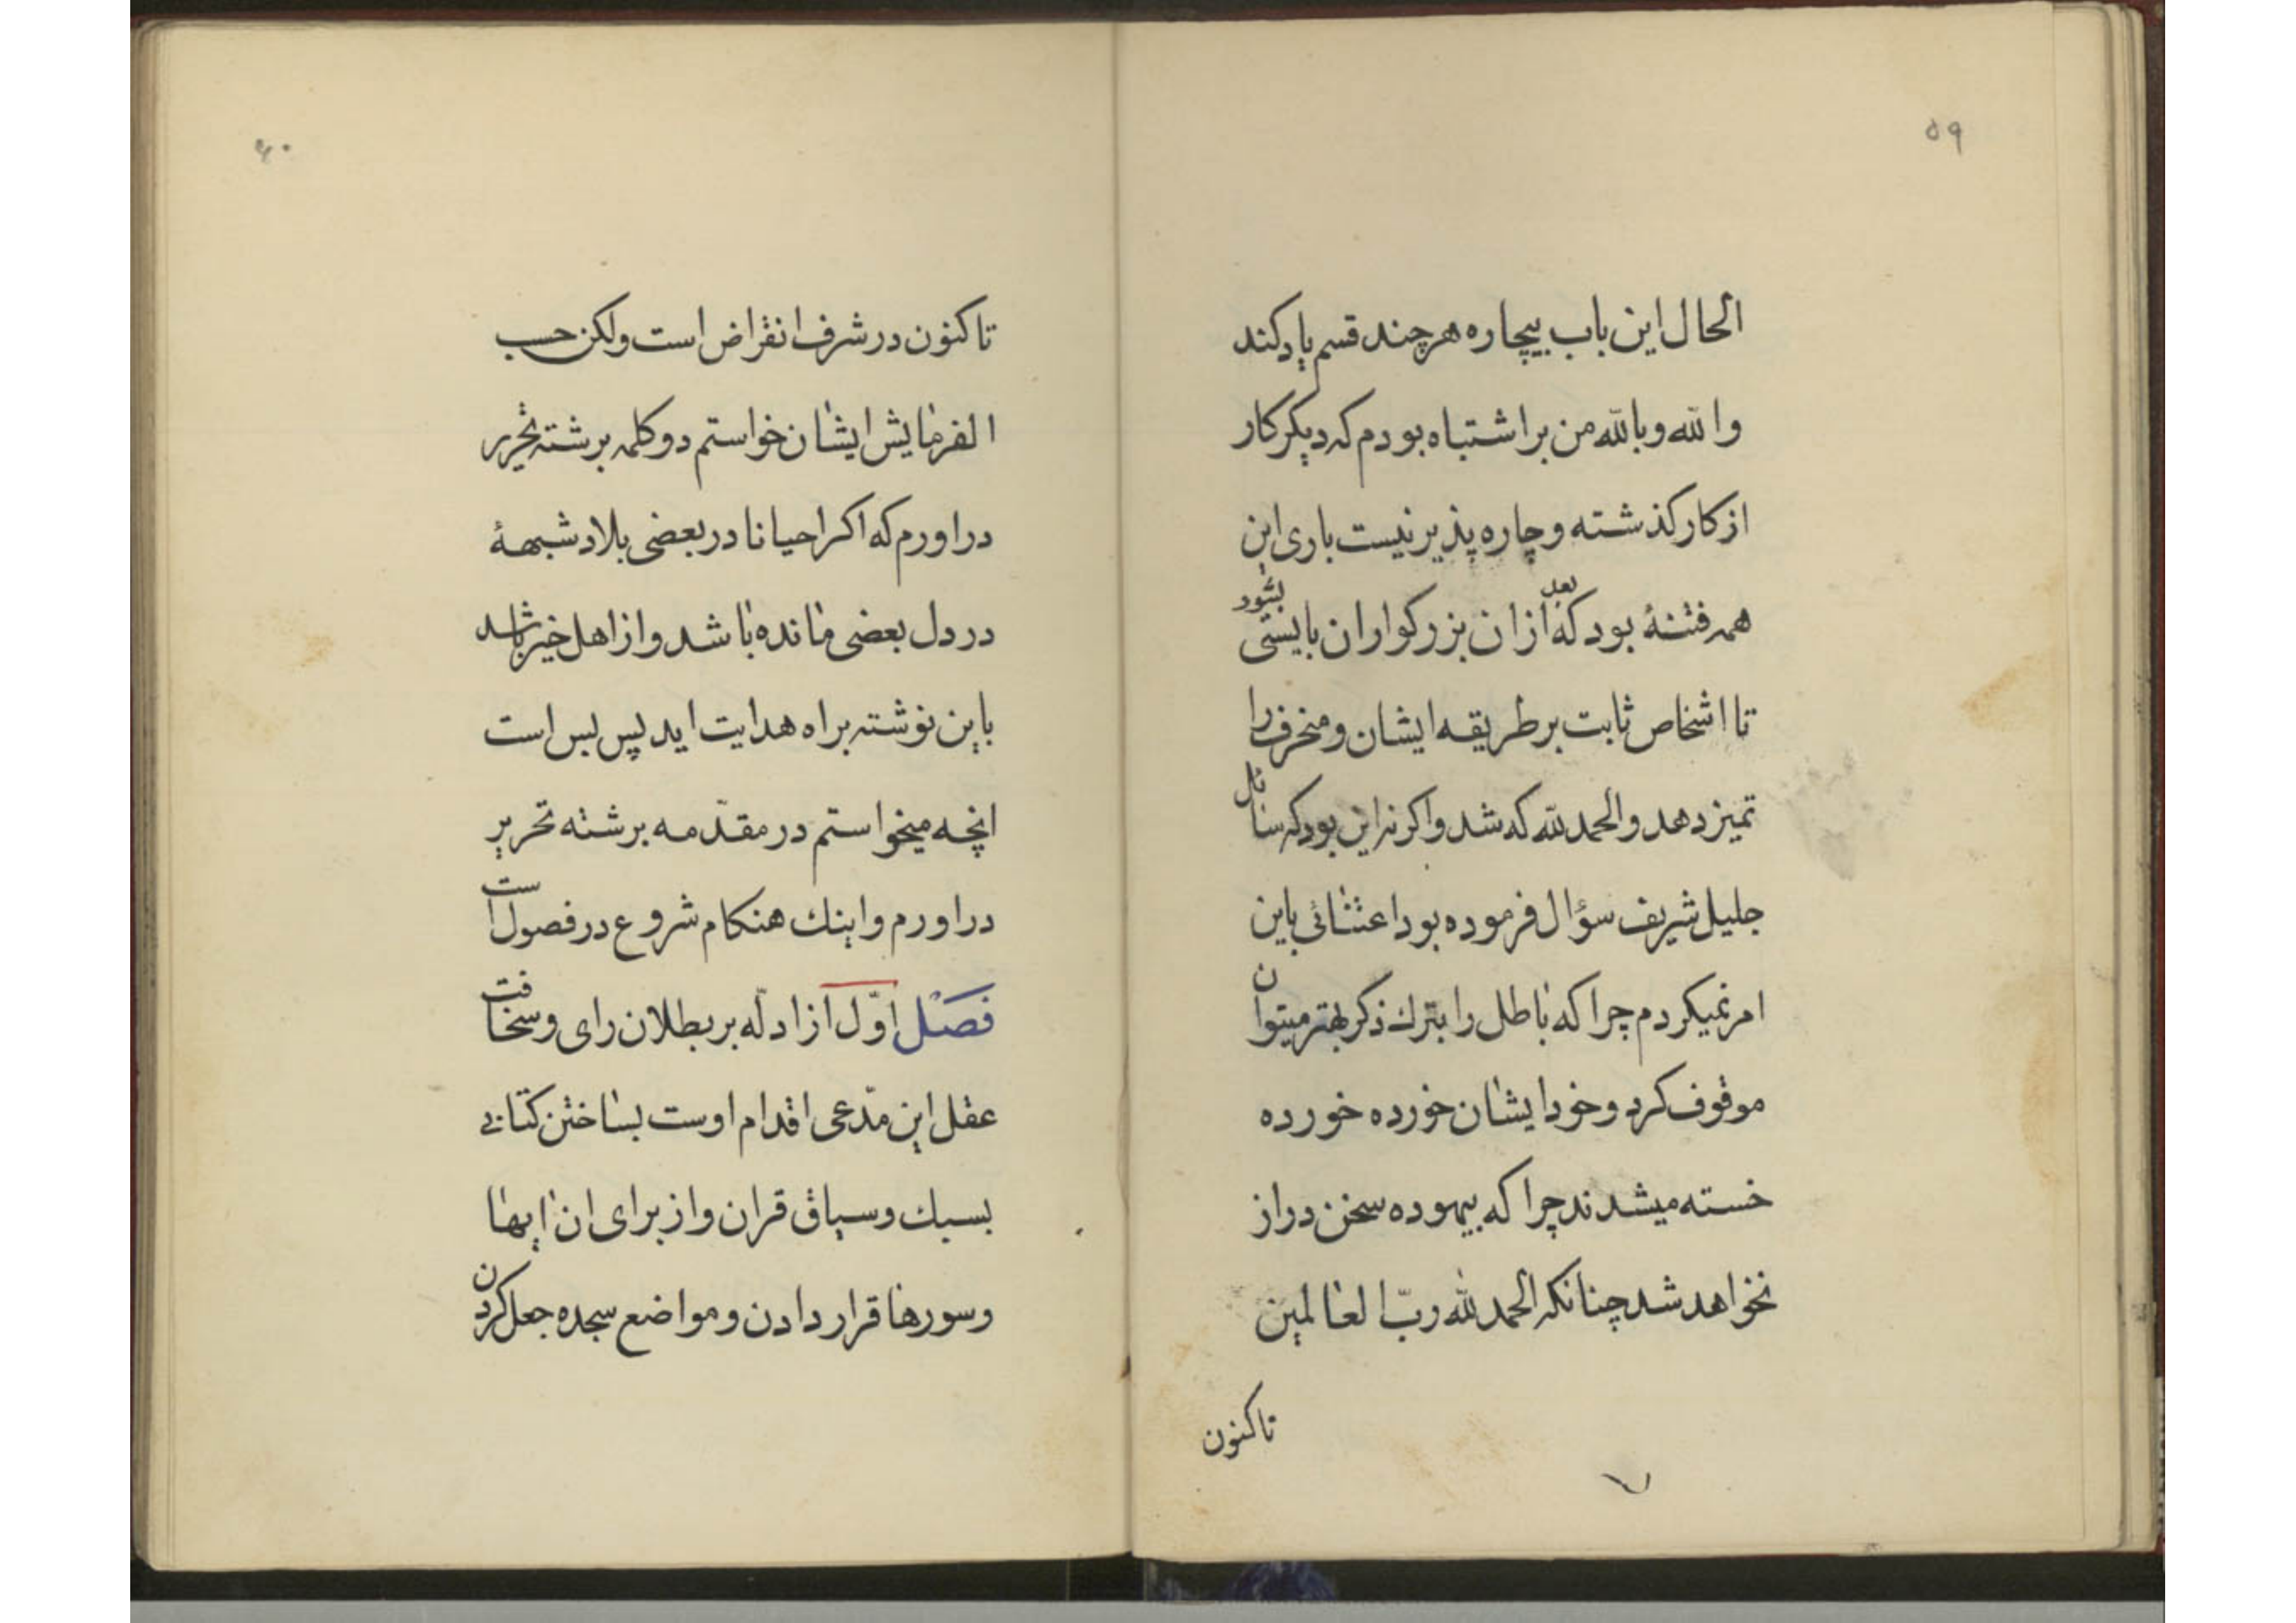 ۵۹
الحال این باب بیچاره هرچند قسم یاد کند
والله وبالله من براشتباه بودم که دیکر کار
از کار کذشته وچاره پذیر نیست باری این
همه فتنهٔ بود که بعد ازان بزرکواران بایستی بشود
تا اشخاص ثابت برطریقه ایشان ومنحرف را
تمیز دهد والحمد لله که شد واکرنه این بود که سائل
جلیل شریف سؤال فرموده بود اعتنائی باین
امر نمیکردم چرا که باطل را بترك ذکر بهتر میتوان
موقوف کرد وخود ایشان خورده خورده
خسته میشدند چرا که بیهوده سخن دراز
نخواهد شد چنانکه الحمد لله ربّ العالمین
تاکنون
۶۰
تاکنون در شرف انقراض است ولکن حسب
الفرمایش ایشان خواستم دو کلمه برشته تحریر
دراورم که اکر احیانا در بعضی بلاد شبههٔ
در دل بعضی مانده باشد واز اهل خیر باشد
باین نوشته براه هدایت اید پس بس است
انچه میخواستم در مقدّمه برشته تحریر
دراورم واینك هنکام شروع در فصول است
فصل اوّل از ادلّه بر بطلان رای وسخافت
عقل این مدّعی اقدام اوست بساختن کتابی
بسبك وسیاق قران واز برای ان ایها
وسورها قرار دادن ومواضع سجده جعل کردن